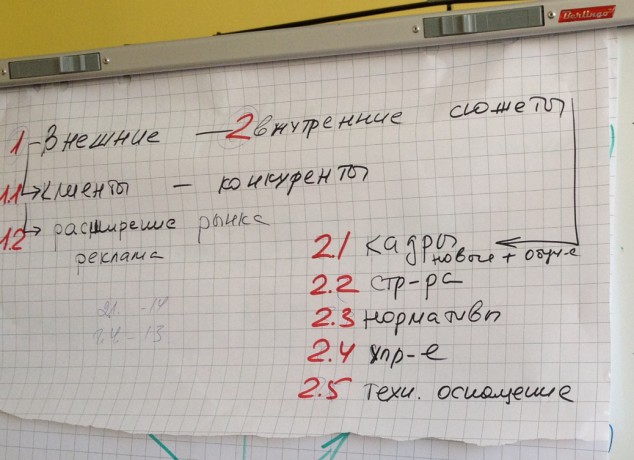 Berlingo
1 - Внешние — 2 внутренние сюжеты
1.1 → клиенты — конкуренты
1.2 → расширение рынка
реклама
2.1 кадры
новые + обуч-е
2.2 стр-ра
2.3 нормативы
2.4 упр-е
2.5 техн. оснащение